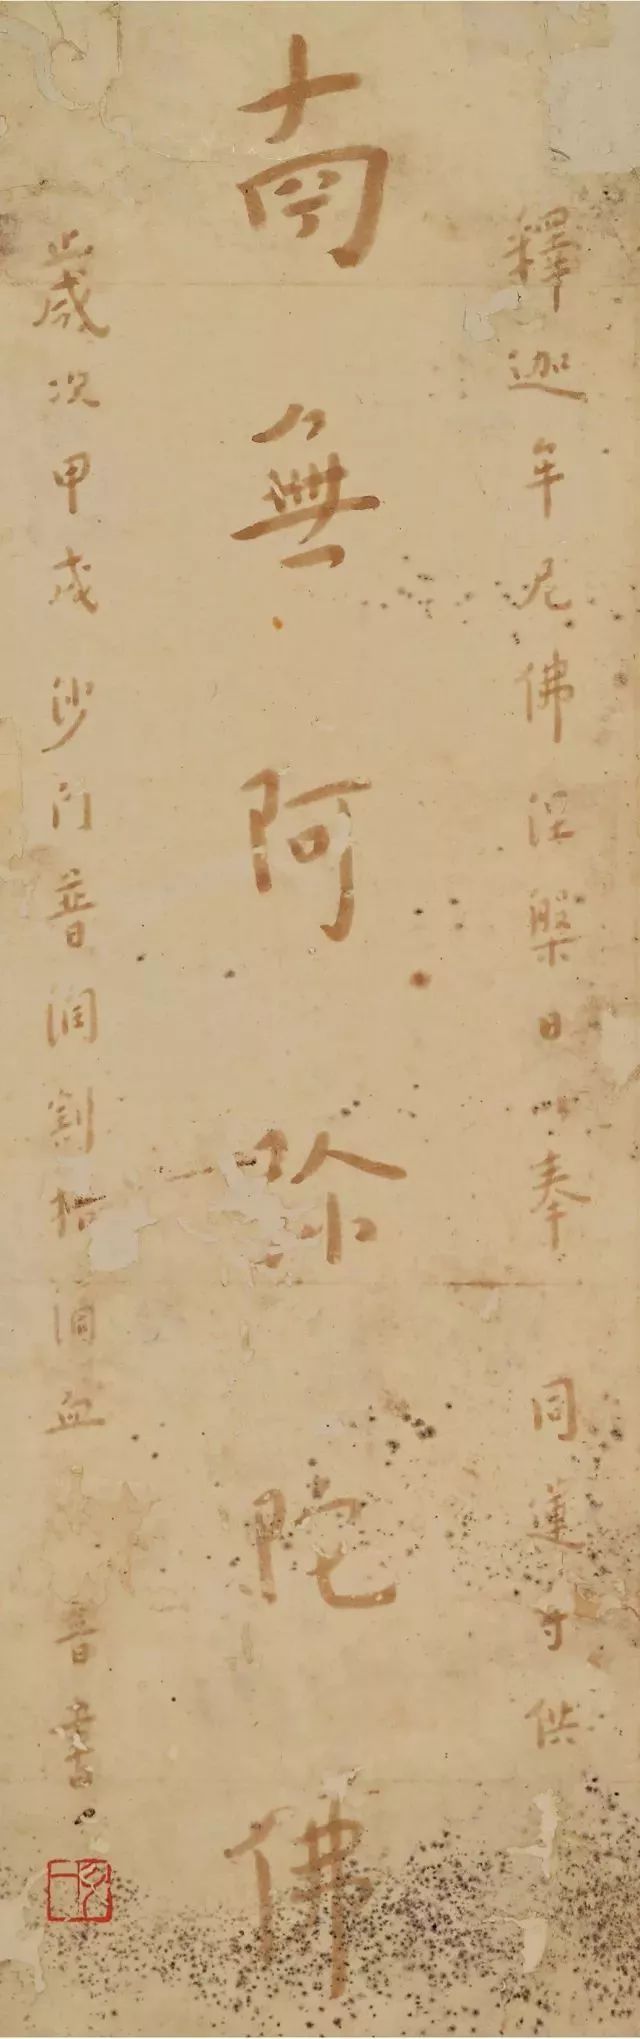 釋迦牟尼佛涅槃日以奉
同蓮寺供
南無阿弥陀佛
歲次甲戌沙門普潤割指血音書